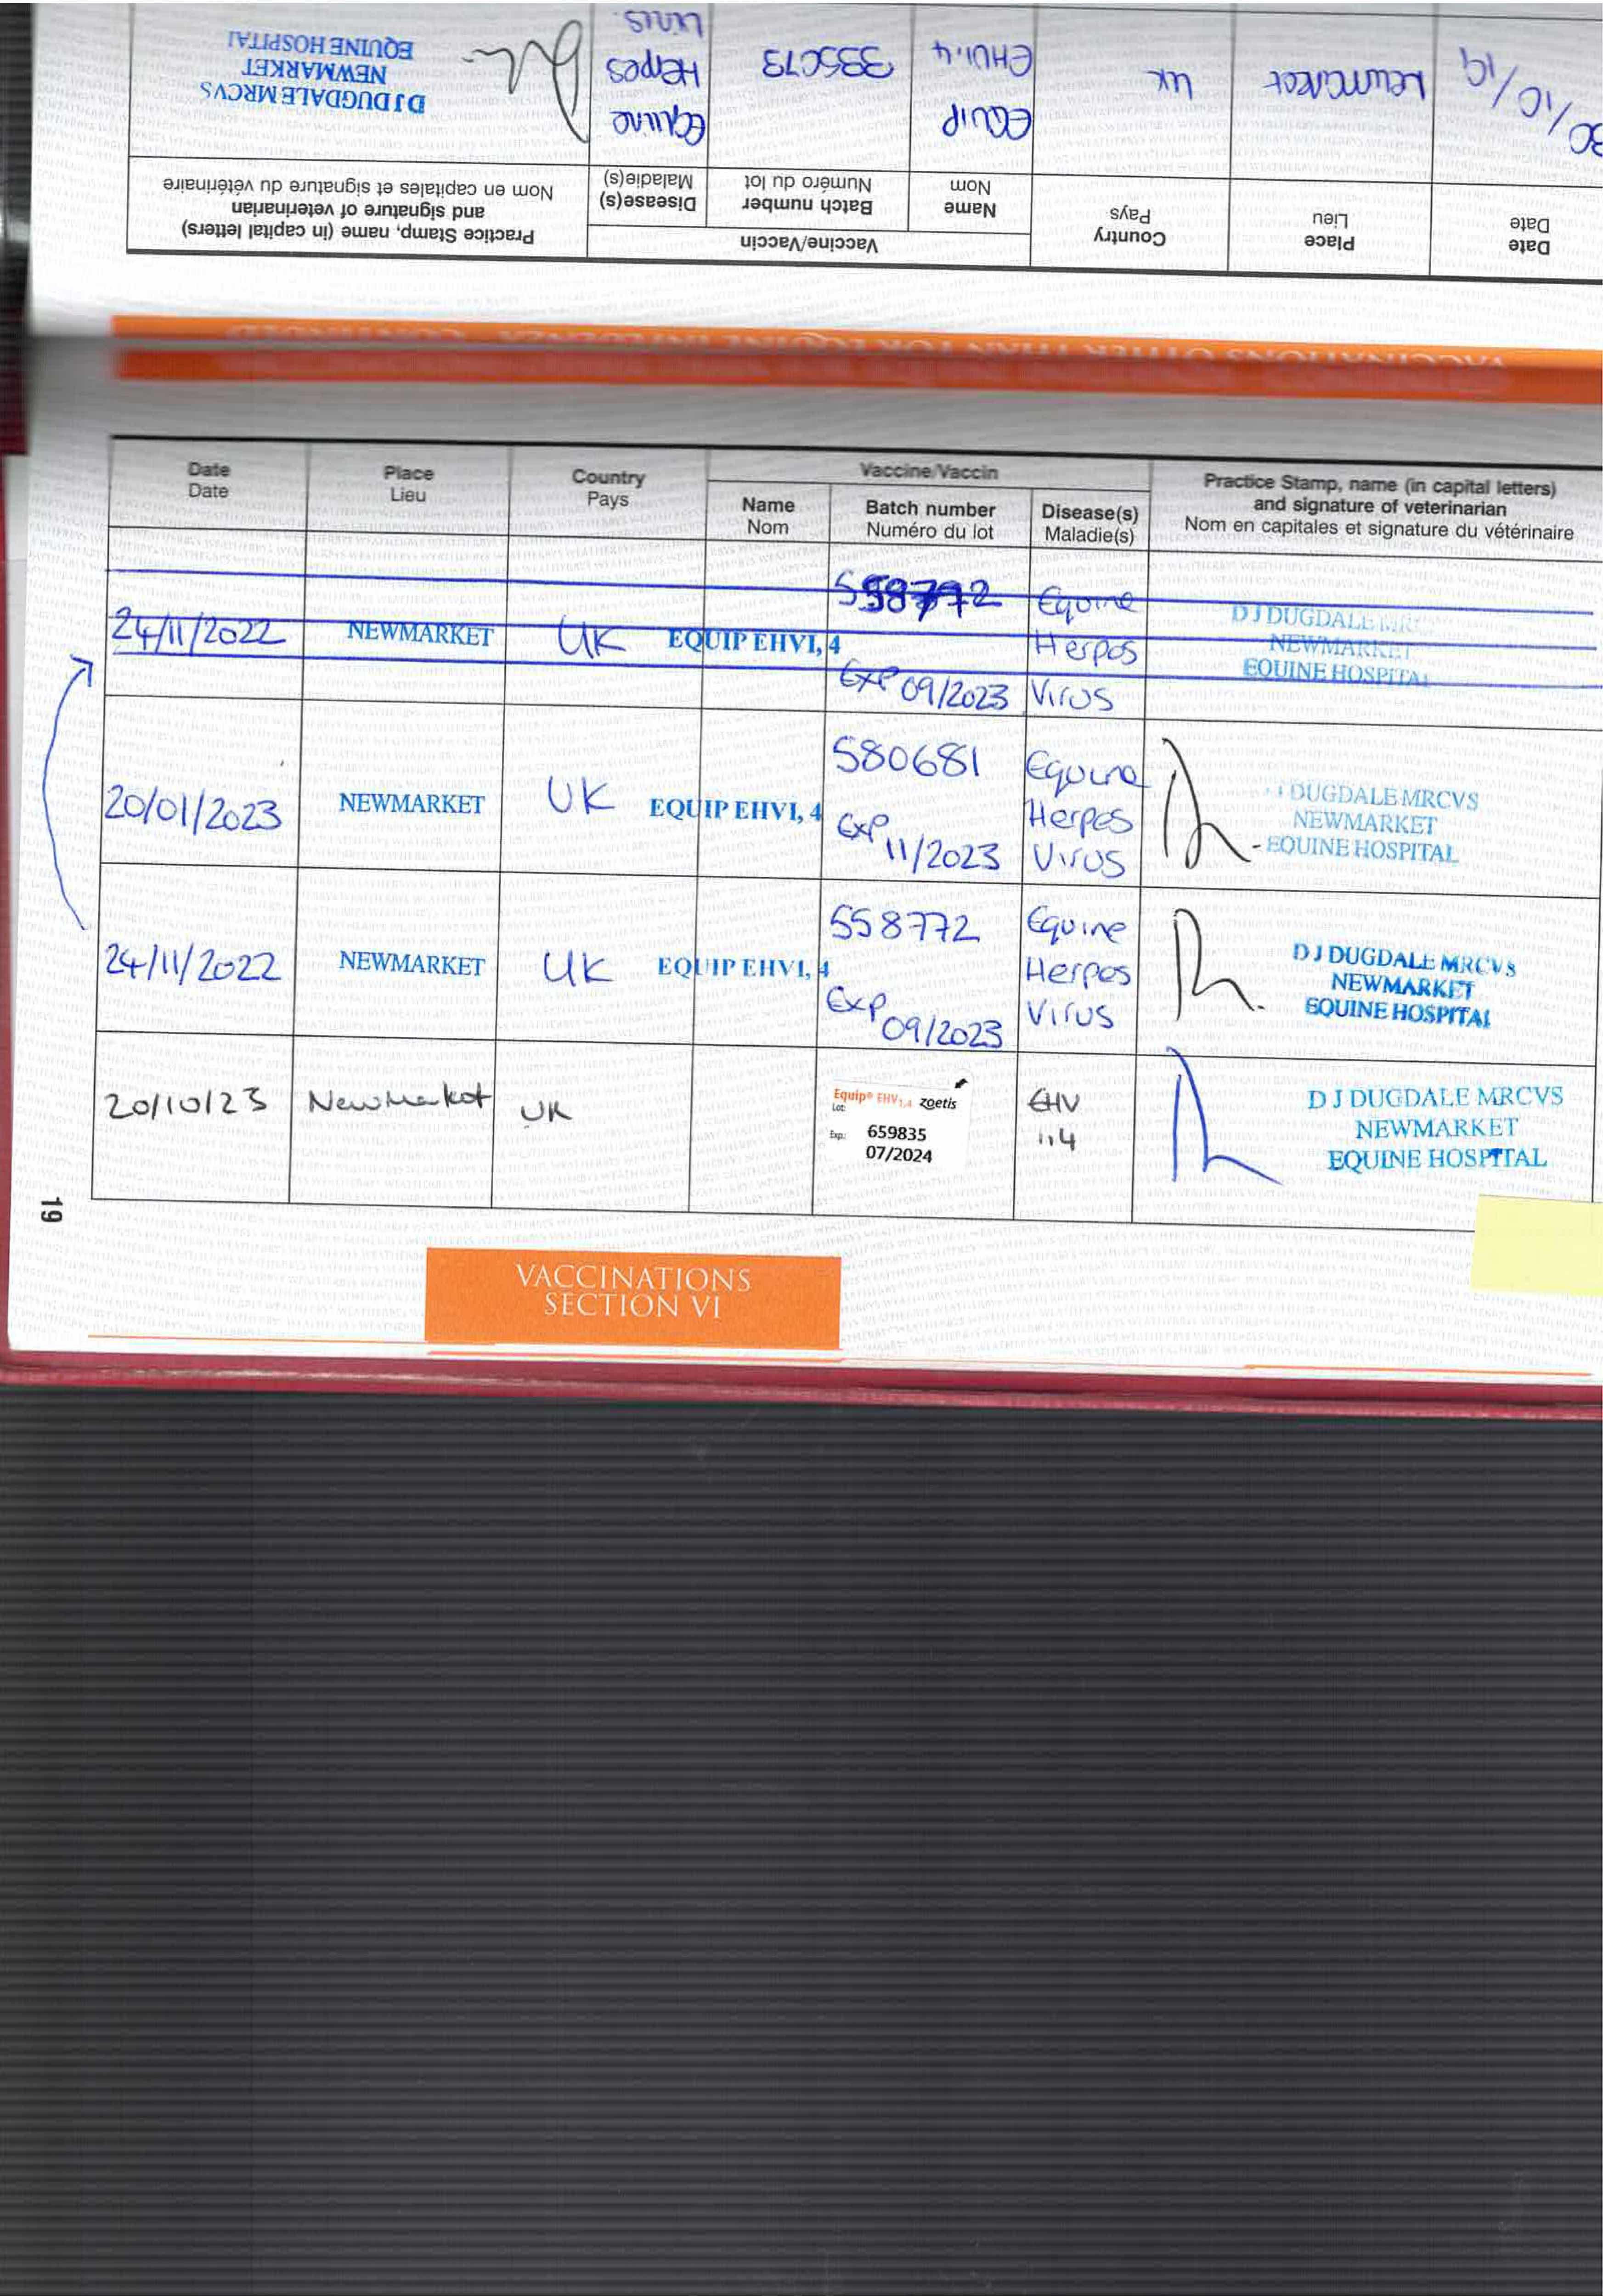 VACCINATIONS OTHER THAN FOR EQUINE INFLUENZA CONTINUED
Date
Date
Place
Lieu
Country
Pays
Vaccine/Vaccin
Name
Nom
Batch number
Numéro du lot
Disease(s)
Maladie(s)
Practice Stamp, name (in capital letters)
and signature of veterinarian
Nom en capitales et signature du vétérinaire
/10/19
Newmarket
UK
EQUIP
EHV1.4
Equine
Herpes
Virus
D J DUGDALE MRCVS
NEWMARKET
EQUINE HOSPITAL
Date
Date
Place
Lieu
Country
Pays
Vaccine/Vaccin
Name
Nom
Batch number
Numéro du lot
Disease(s)
Maladie(s)
Practice Stamp, name (in capital letters)
and signature of veterinarian
Nom en capitales et signature du vétérinaire
24/11/2022
NEWMARKET
UK
EQUIP EHV1, 4
558772
Exp 09/2023
Equine
Herpes
Virus
D J DUGDALE MRC
NEWMARKET
EQUINE HOSPITAL
20/01/2023
NEWMARKET
UK
EQUIP EHV1, 4
580681
Exp 11/2023
Equine
Herpes
Virus
DUGDALE MRCVS
NEWMARKET
EQUINE HOSPITAL
24/11/2022
NEWMARKET
UK
EQUIP EHV1, 4
558772
Exp 09/2023
Equine
Herpes
Virus
D J DUGDALE MRCVS
NEWMARKET
EQUINE HOSPITAL
20/10/23
Newmarket
UK
Equip® EHV1,4 zoetis
Lot:
659835
Exp:
07/2024
EHV
1,4
D J DUGDALE MRCVS
NEWMARKET
EQUINE HOSPITAL
19
VACCINATIONS
SECTION VI